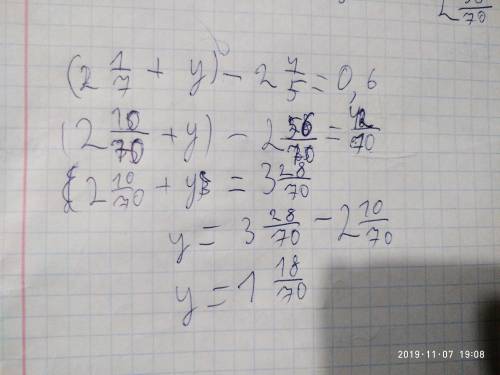 20/70
(2 1/7 + y) - 2 4/5 = 0,6
(2 10/70 + y) - 2 56/70 = 42/70
2 10/70 + y = 3 28/70
y = 3 28/70 - 2 10/70
y = 1 18/70
2019-11-07 19:08